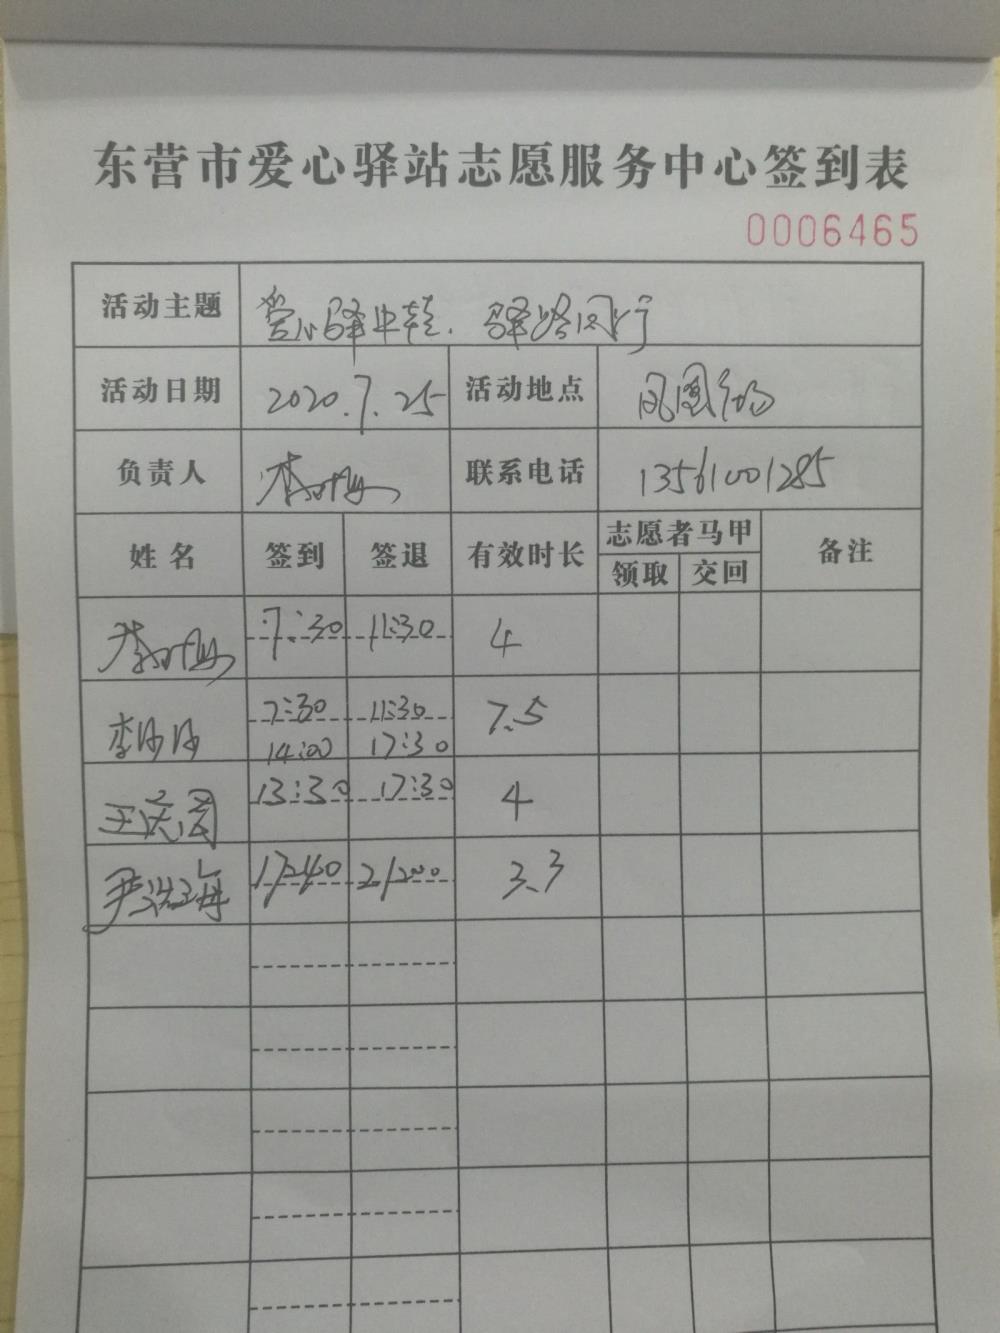 东营市爱心驿站志愿服务中心签到表
0006465
活动主题 爱心驿中转. 驿路同行
活动日期 2020.7.25 活动地点 凤凰广场
负责人 联系电话 13561001285
姓名 签到 签退 有效时长 志愿者马甲 备注
领取 交回
7:30 11:30 4
7:30 11:30 7.5
14:00 17:30
13:30 17:30 4
17:40 21:00 3.3